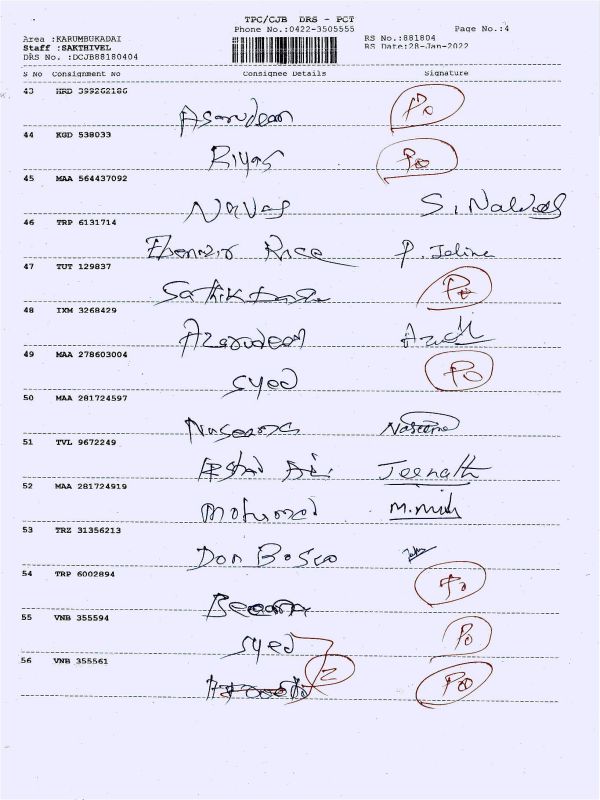 TPC/CJB DRS - PCT
Phone No.:0422-3505555 Page No.:4
Area :KARUMBUKADAI RS No.:881804
Staff :SAKTHIVEL RS Date:28-Jan-2022
DRS No. :DCJB88180404
S No Consignment No Consignee Details Signature
43 HRD 399262186
Asarudeen Po
44 KGD 538033
Riyas Po
45 MAA 564437092
Navas S. Nawas
46 TRP 6131714
P. Jeline
47 TUT 129837
Sathik Po
48 IXM 3268429
Azarudeen
49 MAA 278603004
Syed Po
50 MAA 281724597
Naseema
51 TVL 9672249
Ali Jeenath
52 MAA 281724919
53 TRZ 31356213
Don Bosco
54 TRP 6002894
Po
55 VNB 355594
Syed Po
56 VNB 355561
2 Po